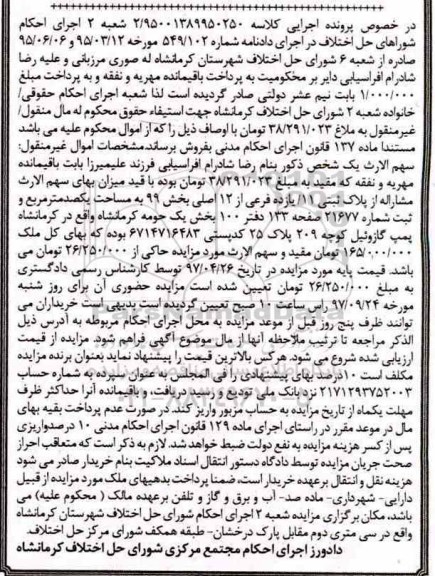 در خصوص پرونده اجرایی کلاسه ۲/۹۵۰۰۱۳۸۹۹۵۰۲۵۰ شعبه ۲ اجرای احکام
شوراهای حل اختلاف در اجرای دادنامه شماره ۵۴۹/۱۰۲ مورخه ۹۵/۰۳/۱۲ و ۹۵/۰۶/۰۶
صادره از شعبه ۶ شورای حل اختلاف شهرستان کرمانشاه له صوری مرزبانی و علیه رضا
شادرام افراسیابی دایر بر محکومیت به پرداخت باقیمانده مهریه و نفقه و به پرداخت مبلغ
۱/۰۰۰/۰۰۰ بابت نیم عشر دولتی صادر گردیده است لذا شعبه اجرای احکام حقوقی/
خانواده شعبه ۲ شورای حل اختلاف کرمانشاه جهت استیفاء حقوق محکوم له مال منقول/
غیرمنقول به ملاغ ۳۸/۲۹۱/۰۲۳ تومان با اوصاف ذیل را که از اموال محکوم علیه می باشد
مستندا ماده ۱۳۷ قانون اجرای احکام مدنی بفروش برساند.مشخصات اموال غیرمنقول:
سهم الارث یک شخص ذکور بنام رضا شادرام افراسیابی فرزند علیمیرزا بابت باقیمانده
مهریه و نفقه که مقید به مبلغ ۳۸/۲۹۱/۰۲۳ تومان بوده با قید میزان بهای سهم الارث
مشارالیه از پلاک ثبتی ۱۱/ یازده فرعی از ۱۲ اصلی بخش ۹۹ به مساحت یکصدمترمربع و
ثبت شماره ۲۱۶۷۷ صفحه ۱۳۳ دفتر ۱۰۰ بخش یک حومه کرمانشاه واقع در کرمانشاه
پمپ گازوئیل کوچه ۲۰۹ پلاک ۲۵ کدپستی ۶۷۱۴۷۱۶۴۸۳ بوده که بهای کل ملک
۱۶۵/۰۰۰/۰۰۰ تومان مقید و سهم الارث مورد مزایده حاکی از ۲۶/۲۵۰/۰۰۰ تومان می
باشد. قیمت پایه مورد مزایده در تاریخ ۹۷/۰۴/۲۶ توسط کارشناس رسمی دادگستری
به مبلغ ۲۶/۲۵۰/۰۰۰ تومان تعیین شده است مزایده حضوری آن برای روز شنبه
مورخه ۹۷/۰۹/۲۴ راس ساعت ۱۰ صبح تعیین گردیده است بدیهی است خریداران می
توانند ظرف پنج روز قبل از موعد مزایده به محل اجرای احکام مربوطه به آدرس ذیل
الذکر مراجعه تا ترتیب ملاحظه آنها از مال موضوع آگهی فراهم شود. مزایده از قیمت
ارزیابی شده شروع می شود. هرکس بالاترین قیمت را پیشنهاد نماید بعنوان برنده مزایده
مکلف است ۱۰درصد بهای پیشنهادی را فی المجلس به عنوان سپرده به شماره حساب
۲۱۷۱۲۹۳۷۵۲۰۰۳ نزدبانک ملی تودیع و رسید دریافت، و باقیمانده آنرا حداکثر ظرف
مهلت یکماه از تاریخ مزایده به حساب مزبور واریز کند. در صورت عدم پرداخت بقیه بهای
مال در موعد مقرر در راستای اجرای ماده ۱۲۹ قانون اجرای احکام مدنی ۱۰ درصدواریزی
پس از کسر هزینه مزایده به نفع دولت ضبط خواهد شد. لازم به ذکر است که متعاقب احراز
صحت جریان مزایده توسط دادگاه دستور انتقال اسناد مالکیت بنام خریدار صادر می شود
هزینه نقل و انتقال برعهده خریدار است، ضمنا پرداخت بدهیهای ملک مورد مزایده از قبیل
دارایی- شهرداری- ماده صد- آب و برق و گاز و تلفن برعهده مالک ( محکوم علیه) می
باشد، مکان برگزاری مزایده شعبه ۲ اجرای احکام شورای حل اختلاف شهرستان کرمانشاه
واقع در سی متری دوم مقابل پارک درخشان- طبقه همکف شورای مرکز حل اختلاف.
دادورز اجرای احکام مجتمع مرکزی شورای حل اختلاف کرمانشاه